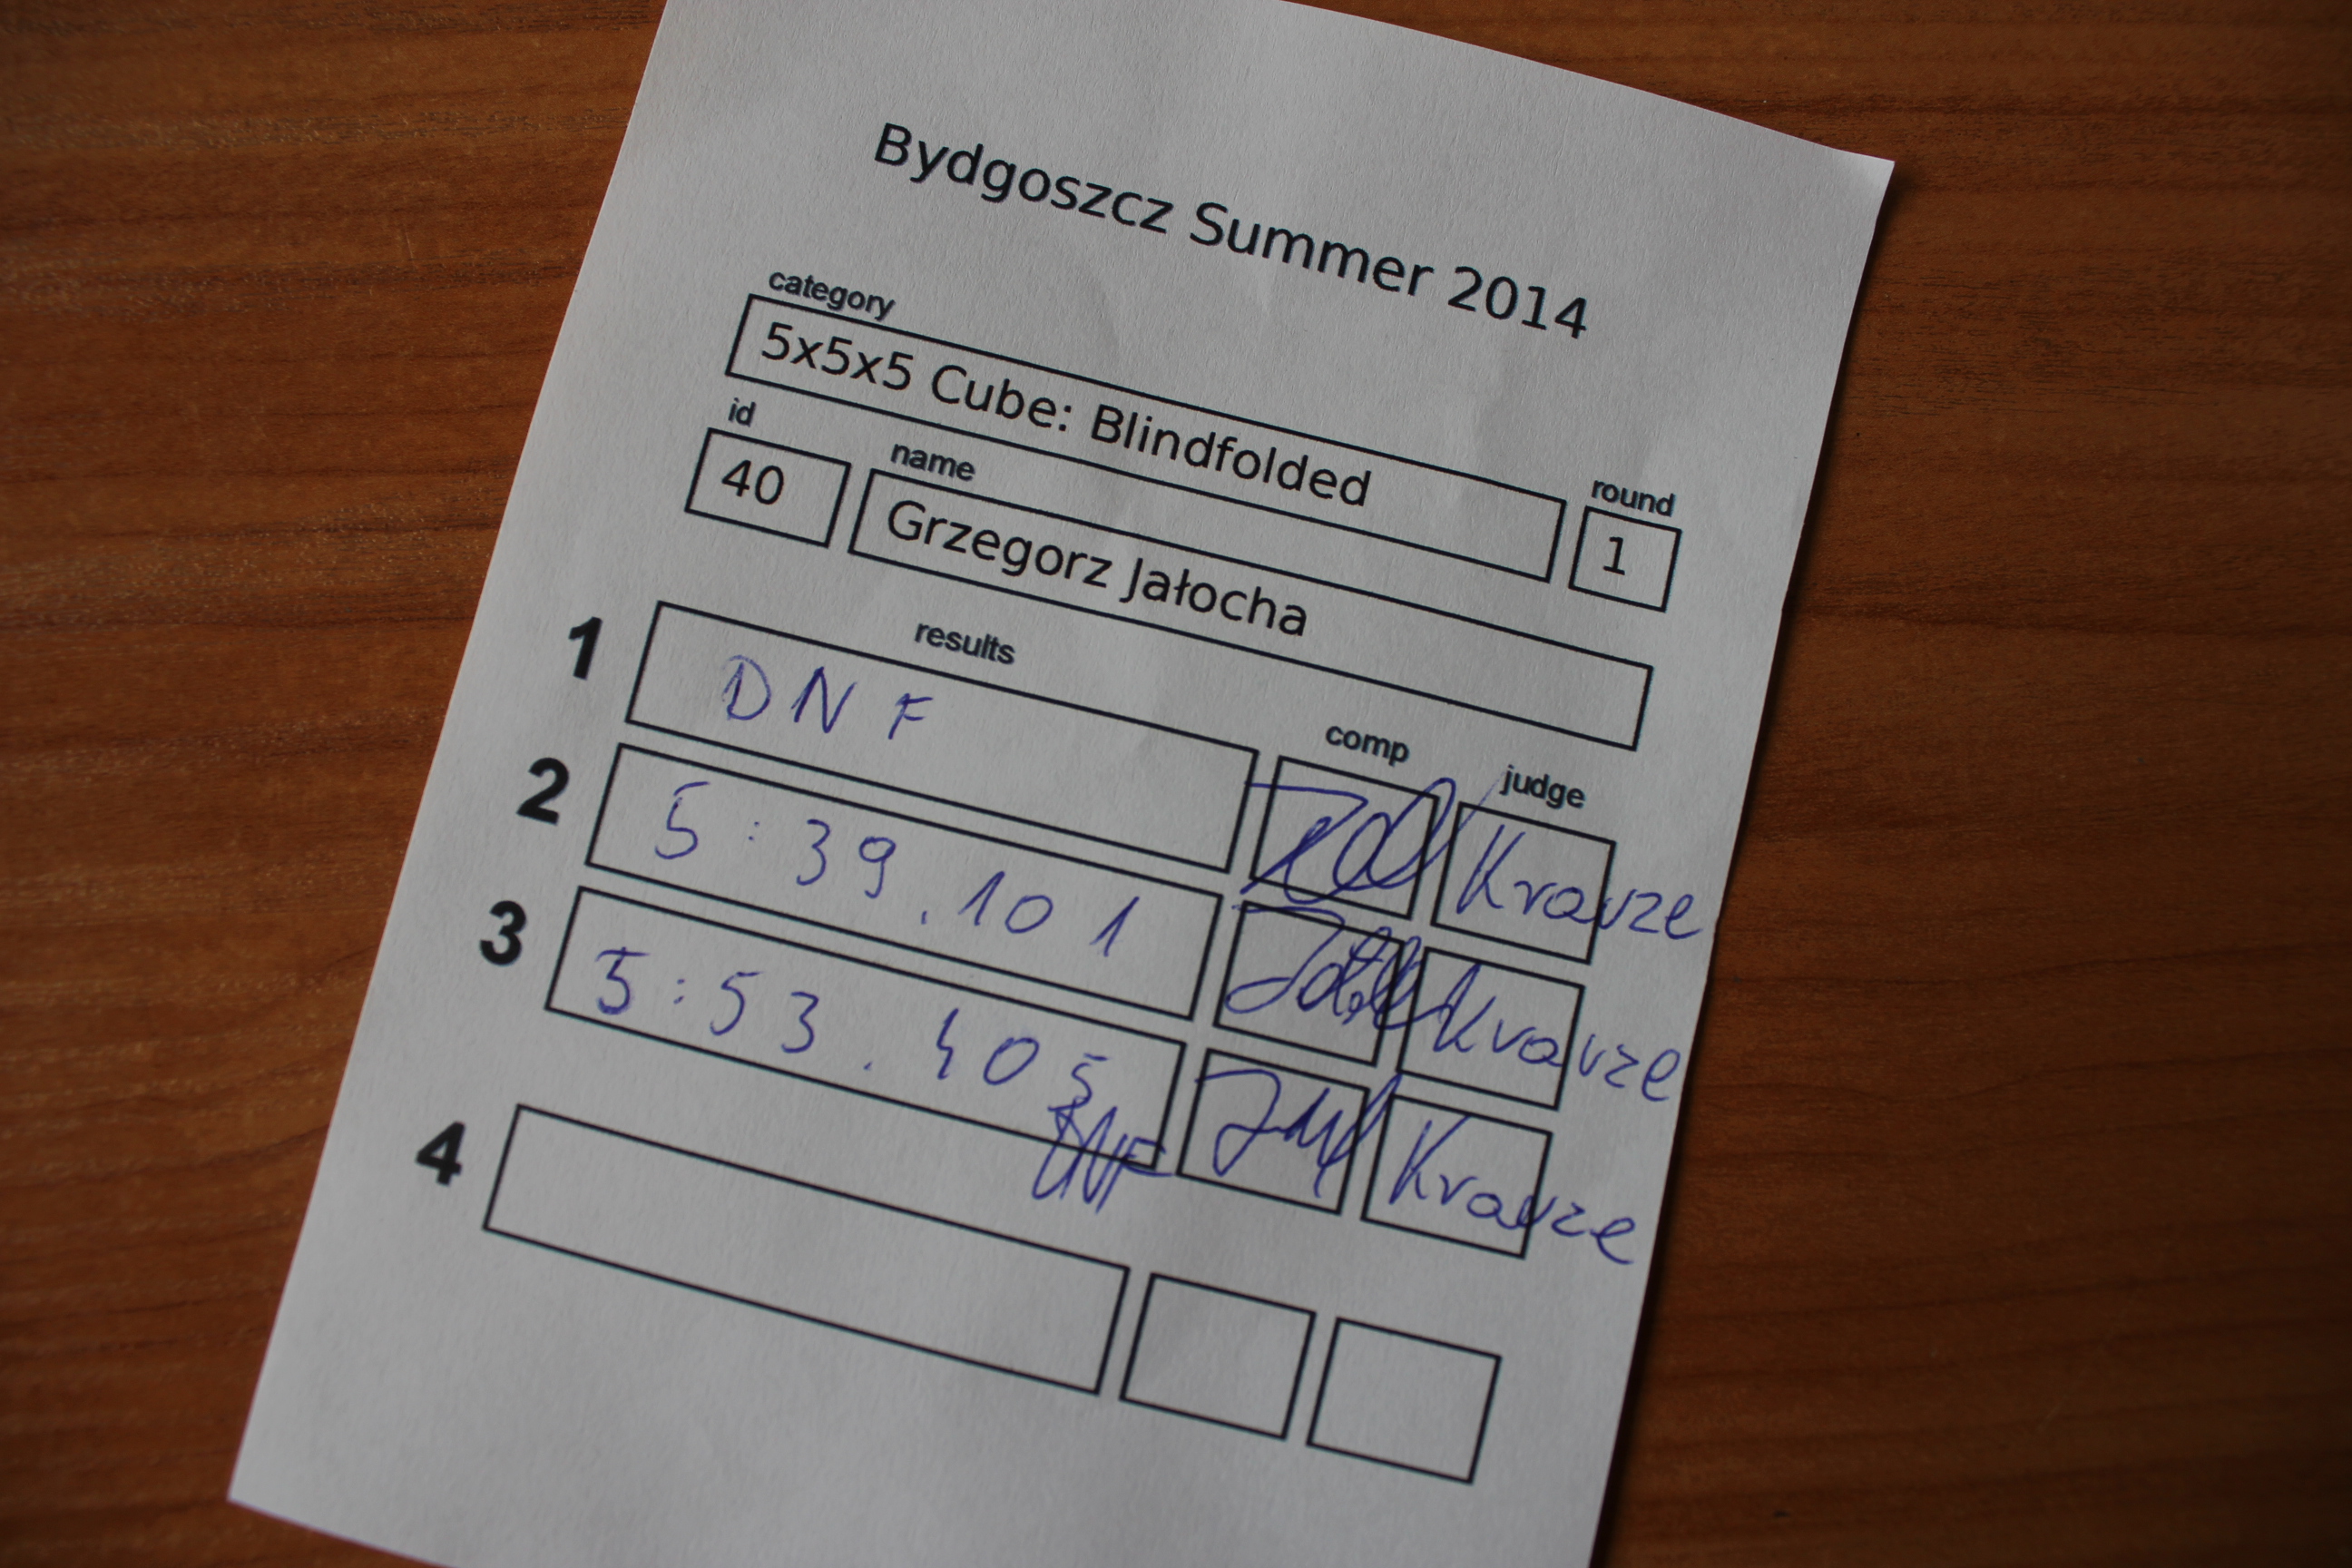 Bydgoszcz Summer 2014
category
5x5x5 Cube: Blindfolded
round
1
id
40
name
Grzegorz Jałocha
results
comp
judge
1
DNF
Krauze
2
5:39.101
Krauze
3
5:53.405
DNF
Krauze
4